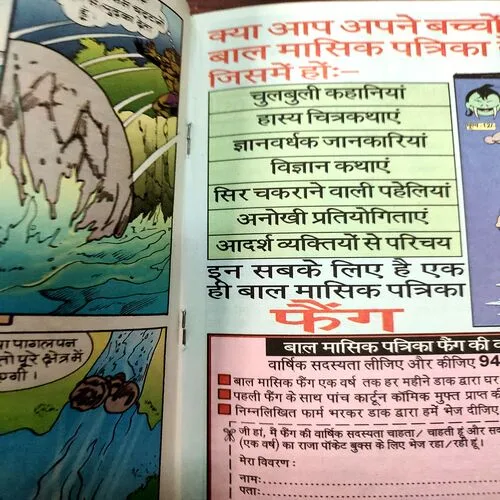 पागलपन
तो पूरे क्षेत्र में
क्या आप अपने बच्चों
बाल मासिक पत्रिका
जिसमें हों:–
चुलबुली कहानियां
हास्य चित्रकथाएं
ज्ञानवर्धक जानकारियां
विज्ञान कथाएं
सिर चकराने वाली पहेलियां
अनोखी प्रतियोगिताएं
आदर्श व्यक्तियों से परिचय
इन सबके लिए है एक
ही बाल मासिक पत्रिका
फैंग
बाल मासिक पत्रिका फैंग की
वार्षिक सदस्यता लीजिए और कीजिए 94
बाल मासिक फैंग एक वर्ष तक हर महीने डाक द्वारा घर
पहली फैंग के साथ पांच कार्टून कॉमिक मुफ्त प्राप्त
निम्नलिखित फार्म भरकर डाक द्वारा हमें भेज दीजिए
जी हां, मैं फैंग की वार्षिक सदस्यता चाहता/ चाहती हूं और
(एक वर्ष) का राजा पॉकेट बुक्स के लिए भेज रहा/रही हूं।
मेरा विवरण :
नाम:
पता: